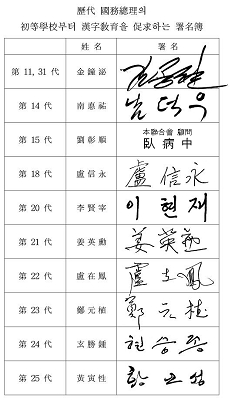 歷代 國務總理의
初等學校부터 漢字敎育을 促求하는 署名簿
姓 名 署 名
第 11, 31 代 金鐘泌 김종필
第 14 代 南悳祐 남덕우
第 15 代 劉彰順 本聯合會 顧問
臥 病 中
第 18 代 盧信永 盧信永
第 20 代 李賢宰 이현재
第 21 代 姜英勳 姜英勳
第 22 代 盧在鳳 盧在鳳
第 23 代 鄭元植 鄭元植
第 24 代 玄勝鍾 현승종
第 25 代 黃寅性 황인성